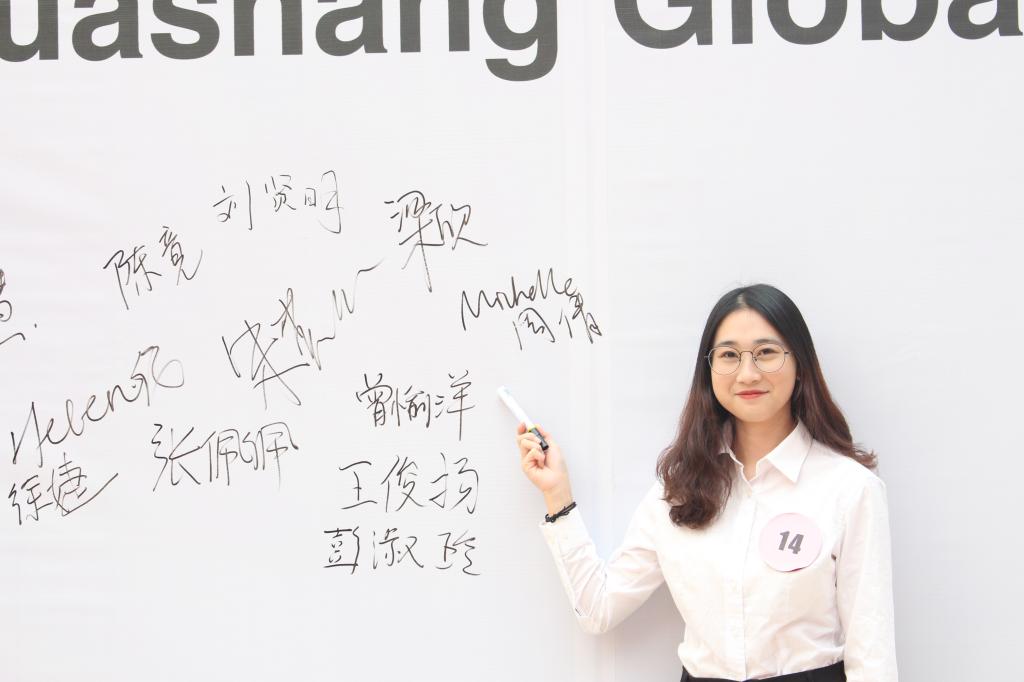 uashang Globa
刘贤明
梁欣
陈竟
Michelle
周倩
Helen
曾愉洋
张佩佩
徐婕
王俊扬
彭淑玲
14